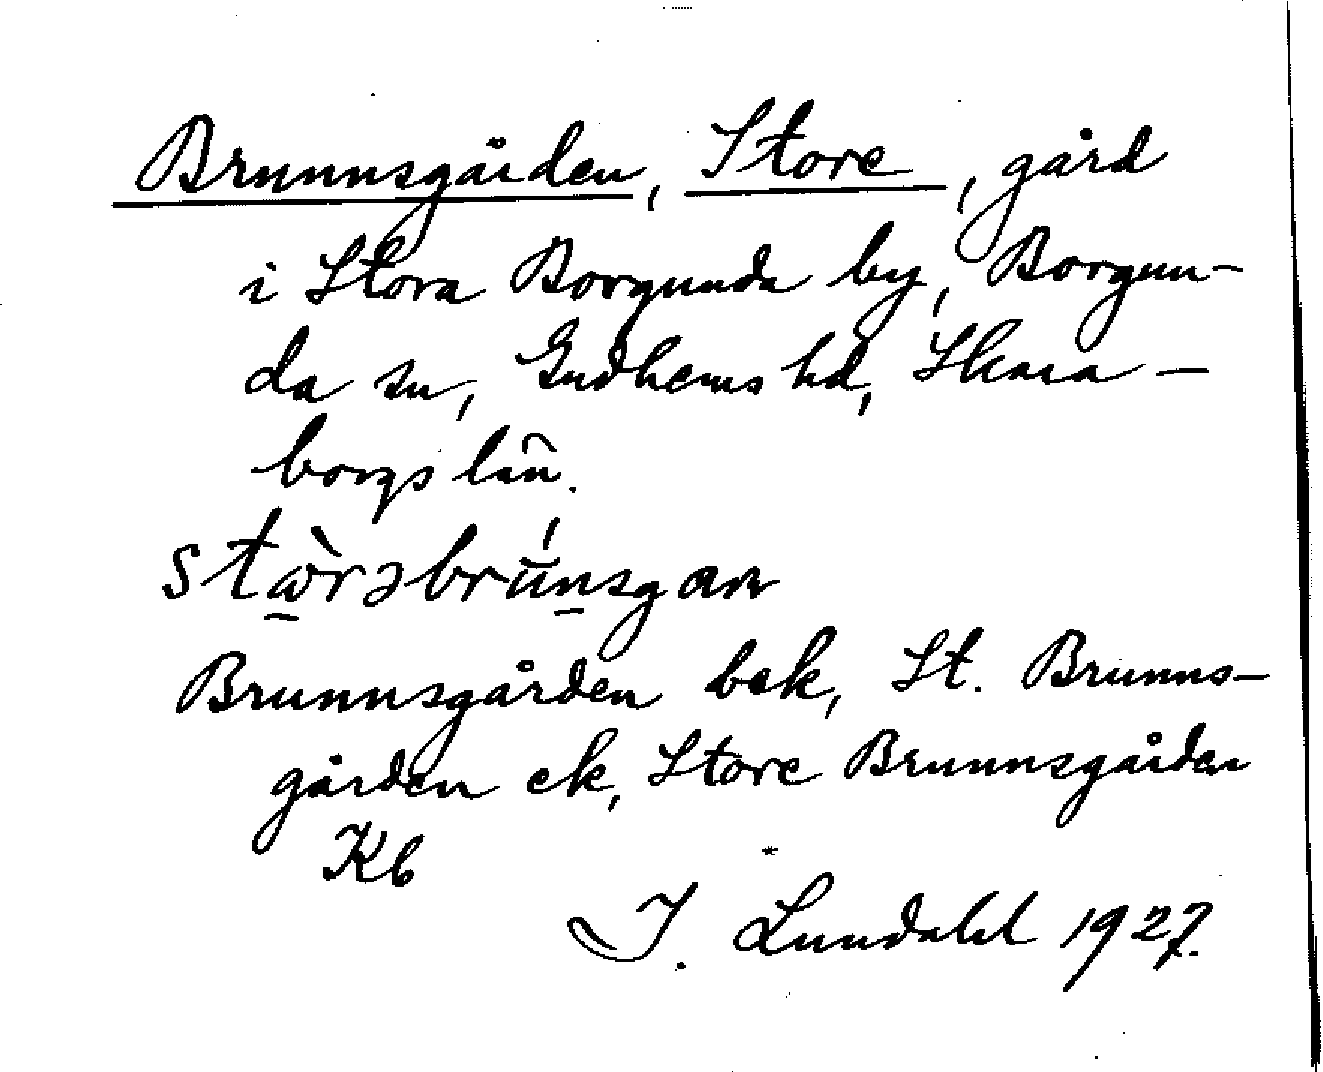 Brunnsgården, Store, gård
i Stora Borgunda by, Borgun-
da sn, Gudhems hd, Skara-
borgs län.
stὼ̲rəbrün̲sgαɴ
Brunnsgården bek, St. Brunns-
gården ek, Store Brunnsgården
Kb
I. Lundahl 1927.